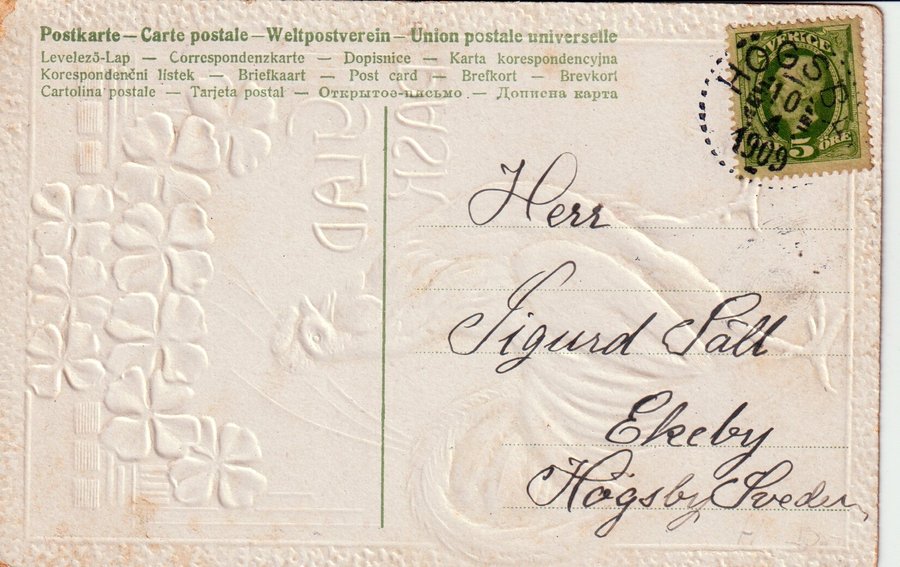 Postkarte — Carte postale — Weltpostverein — Union postale universelle
Levelező-Lap — Correspondenzkarte — Dopisnice — Karta korespondencyjna
Korespondenční lístek — Briefkaart — Post card — Brefkort — Brevkort
Cartolina postale — Tarjeta postal — Открытое-письмо — Дописна карта
GLAD
PÅSK
SVERIGE
5 ÖRE
HÖGSBY
10
4
1909
Herr
Sigurd Säll
Ekeby
Högsby Sveden